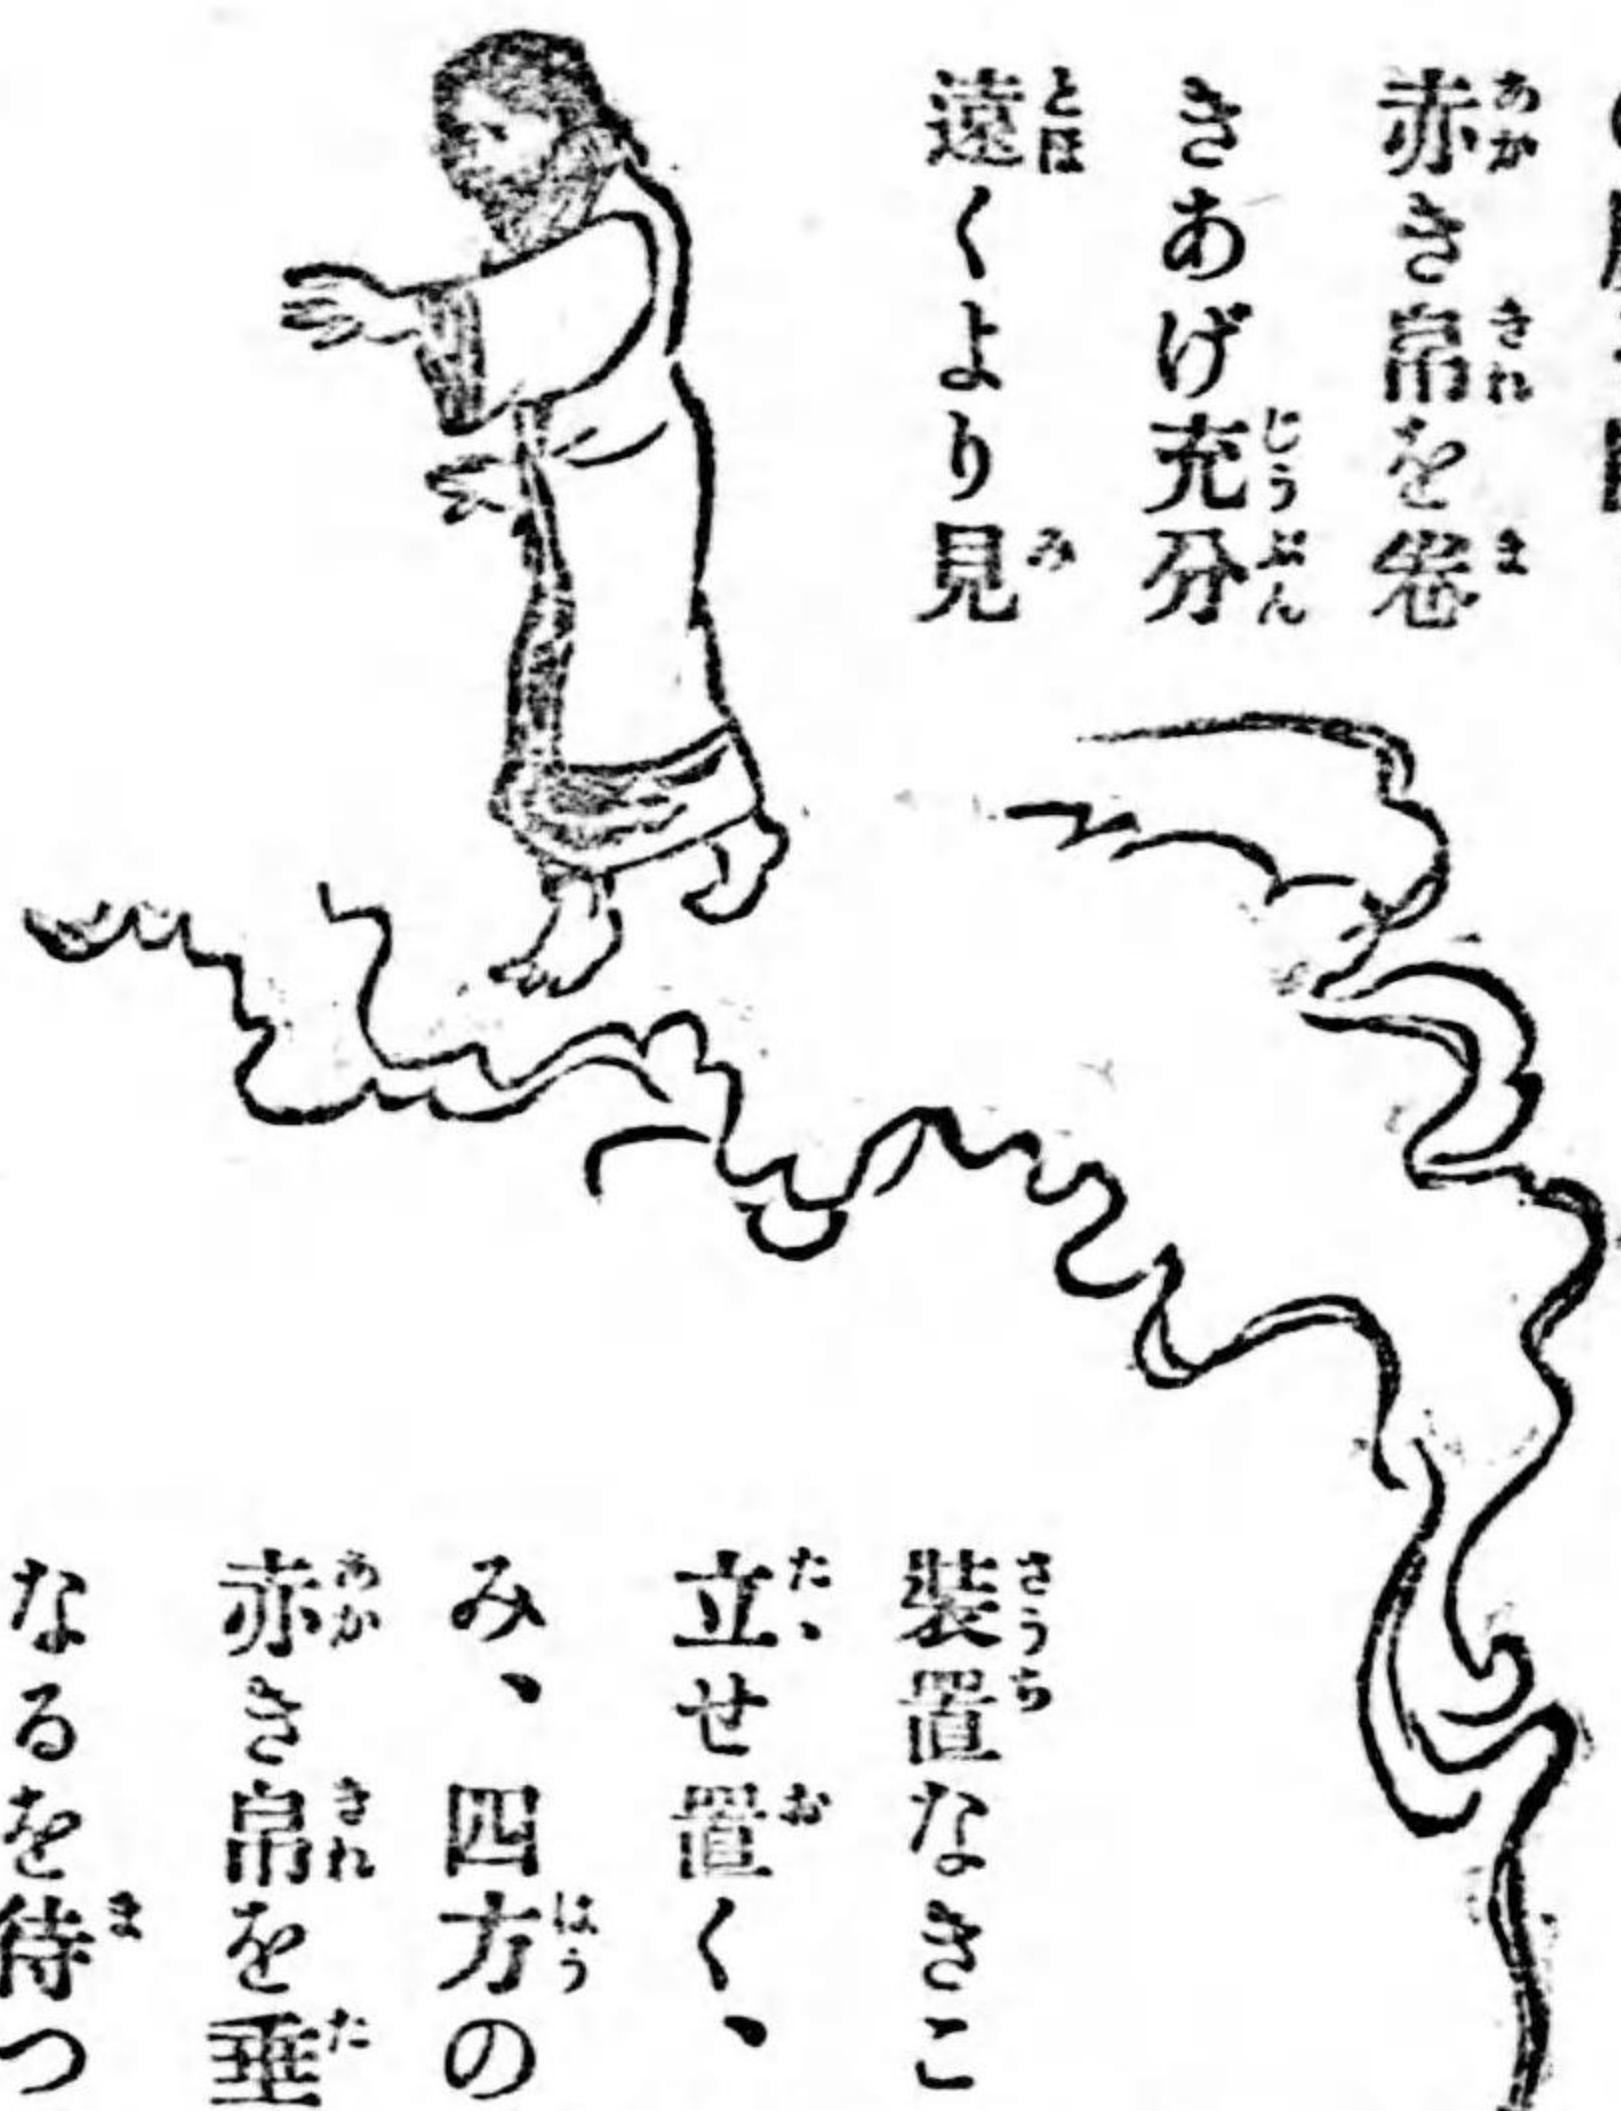 赤き帛を卷
きあげ充分
遠くより見
裝置なきこ
立せ置く、
み、四方の
赤き帛を垂
なるを待つ